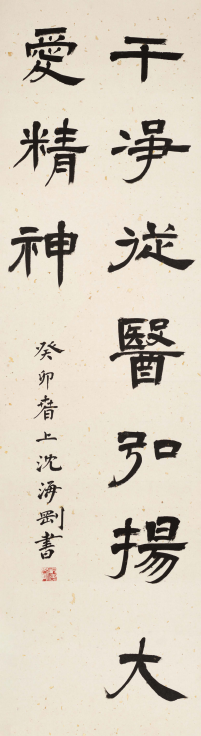 干淨從醫弘揚大
愛精神
癸卯春上沈海剛書